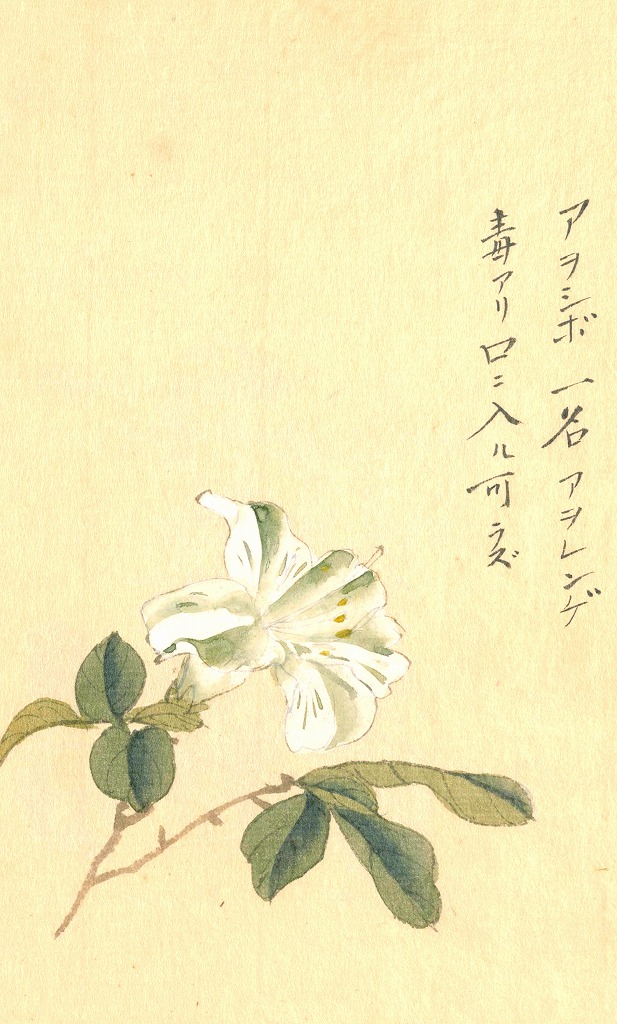 アヲシボ 一名 アヲレンゲ
毒アリ口ニ入ル可ラズ